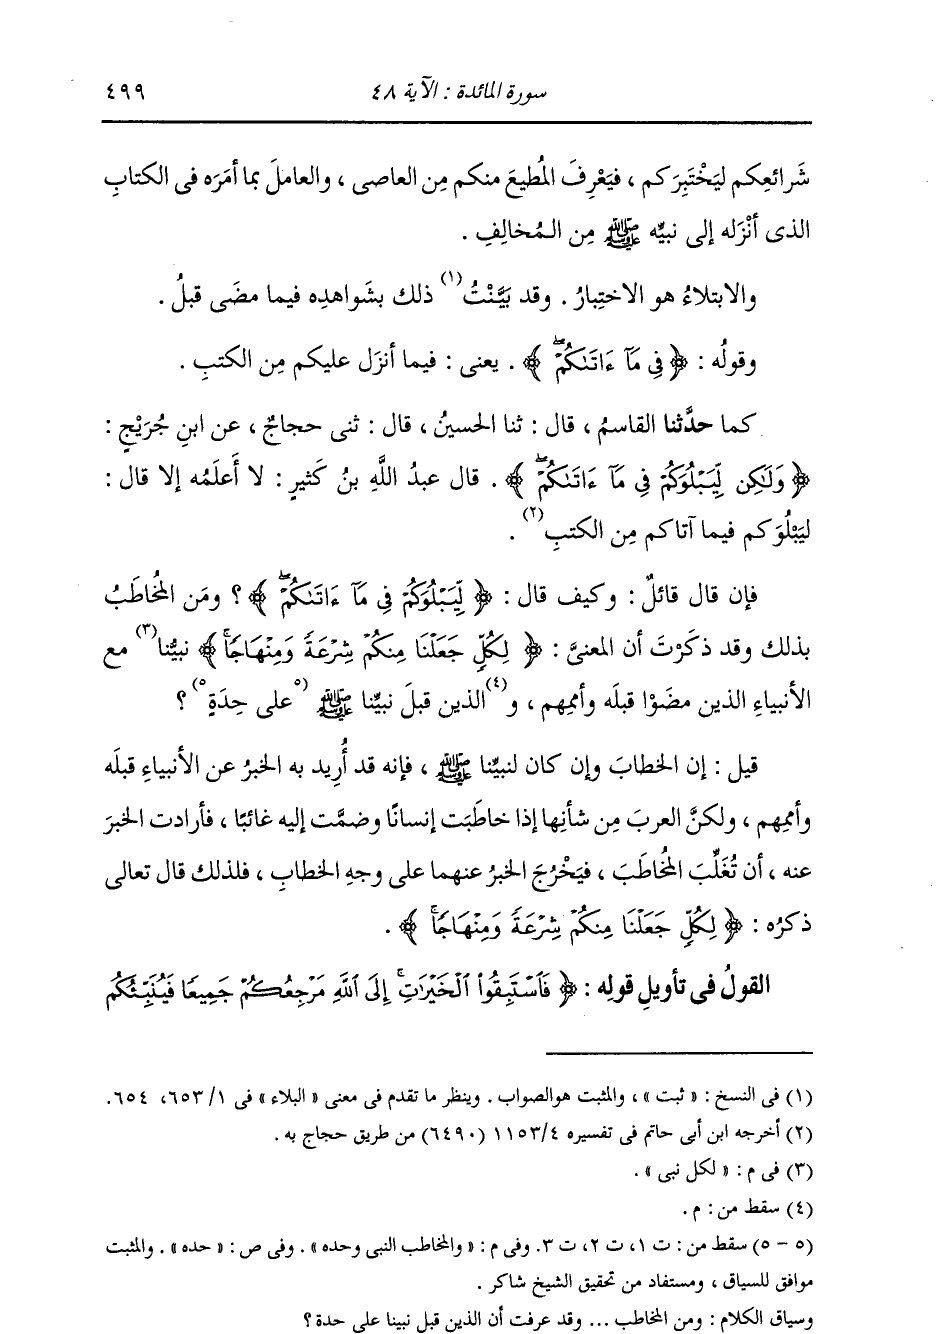 سورة المائدة : الآية ٤٨
٤٩٩
شَرائعِكم ليَخْتَبِرَكم ، فيَعْرِفَ المُطيعَ منكم مِن العاصى ، والعاملَ بما أمَرَه فى الكتابِ
الذى أنْزَله إلى نبيِّه ﷺ مِن المُخالِفِ .
والابتلاءُ هو الاختِبارُ . وقد بَيَّنْتُ(١) ذلك بشَواهدِه فيما مضَى قبلُ .
وقولُه : ﴿ فِى مَآ ءَاتَىٰكُمْ ۖ ﴾ . يعنى : فيما أنزَل عليكم مِن الكتبِ .
كما حدَّثنا القاسمُ ، قال : ثنا الحسينُ ، قال : ثنى حجاجٌ ، عن ابنِ جُرَيْجٍ :
﴿ وَلَٰكِن لِّيَبْلُوَكُمْ فِى مَآ ءَاتَىٰكُمْ ۖ ﴾ . قال عبدُ اللَّهِ بنُ كَثيرٍ : لا أَعلَمُه إلا قال :
ليَبْلُوَكم فيما آتاكم مِن الكتبِ(٢) .
فإن قال قائلٌ : وكيف قال : ﴿ لِّيَبْلُوَكُمْ فِى مَآ ءَاتَىٰكُمْ ۖ ﴾ ؟ ومَن المُخاطَبُ
بذلك وقد ذكَرْتَ أن المعنىَّ : ﴿ لِكُلٍّ جَعَلْنَا مِنكُمْ شِرْعَةً وَمِنْهَاجًا ۚ ﴾ نبيُّنا(٣) مع
الأنبياءِ الذين مضَوْا قبلَه وأممِهم ، و(٤)الذين قبلَ نبيِّنا ﷺ (٥على حِدَةٍ٥) ؟
قيل : إن الخطابَ وإن كان لنبيِّنا ﷺ ، فإنه قد أُرِيد به الخبرُ عن الأنبياءِ قبلَه
وأممِهم ، ولكنَّ العربَ مِن شأنِها إذا خاطَبَت إنسانًا وضمَّت إليه غائبًا ، فأرادت الخبرَ
عنه ، أن تُغَلِّبَ المُخاطَبَ ، فيَخْرُجَ الخبرُ عنهما على وجهِ الخطابِ ، فلذلك قال تعالى
ذكرُه : ﴿ لِكُلٍّ جَعَلْنَا مِنكُمْ شِرْعَةً وَمِنْهَاجًا ۚ ﴾ .
القولُ فى تأويلِ قولِه : ﴿ فَٱسْتَبِقُوا۟ ٱلْخَيْرَٰتِ ۚ إِلَى ٱللَّهِ مَرْجِعُكُمْ جَمِيعًا فَيُنَبِّئُكُم
(١) فى النسخ : « ثبت » ، والمثبت هوالصواب . وينظر ما تقدم فى معنى « البلاء » فى ١/ ٦٥٣، ٦٥٤.
(٢) أخرجه ابن أبى حاتم فى تفسيره ١١٥٣/٤ (٦٤٩٠) من طريق حجاج به .
(٣) فى م : « لكل نبى » .
(٤) سقط من : م .
(٥ - ٥) سقط من : ت ١، ت ٢، ت ٣. وفى م : « والمخاطب النبى وحده » . وفى ص : « حده » . والمثبت
موافق للسياق ، ومستفاد من تحقيق الشيخ شاكر .
وسياق الكلام : ومن المخاطب ... وقد عرفت أن الذين قبل نبينا على حدة ؟